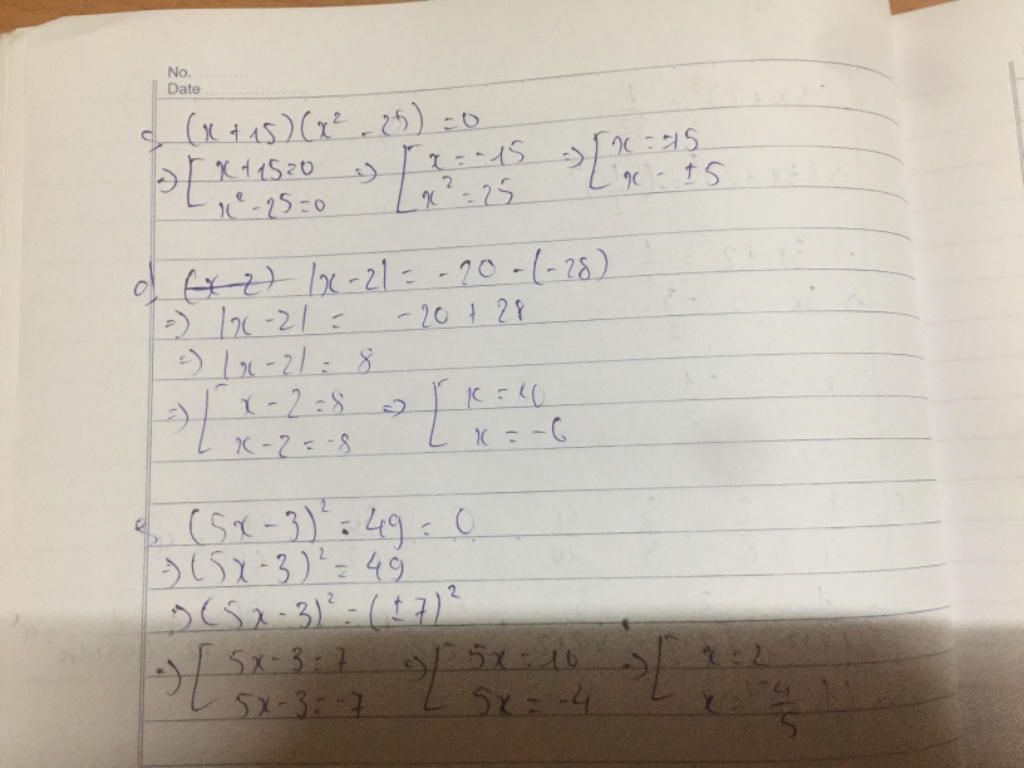 No. ............
Date ......................
c, (x + 15)(x² - 25) = 0
=> [ x + 15 = 0 => [ x = -15 => [ x = -15
x² - 25 = 0 x² = 25 x = ± 5
d, (x - 2) |x - 2| = -20 - (-28)
=> |x - 2| = -20 + 28
=> |x - 2| = 8
=> [ x - 2 = 8 => [ x = 10
x - 2 = -8 x = -6
e, (5x - 3)² - 49 = 0
=> (5x - 3)² = 49
=> (5x - 3)² = (± 7)²
=> [ 5x - 3 = 7 => [ 5x = 10 => [ x = 2
5x - 3 = -7 5x = -4 x = -4/5